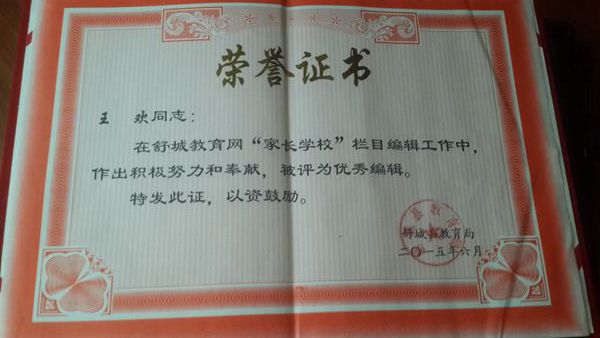 荣誉证书
王 欢同志：
在舒城教育网“家长学校”栏目编辑工作中，
作出积极努力和奉献，被评为优秀编辑。
特发此证，以资鼓励。
舒城县教育局
二〇一五年六月